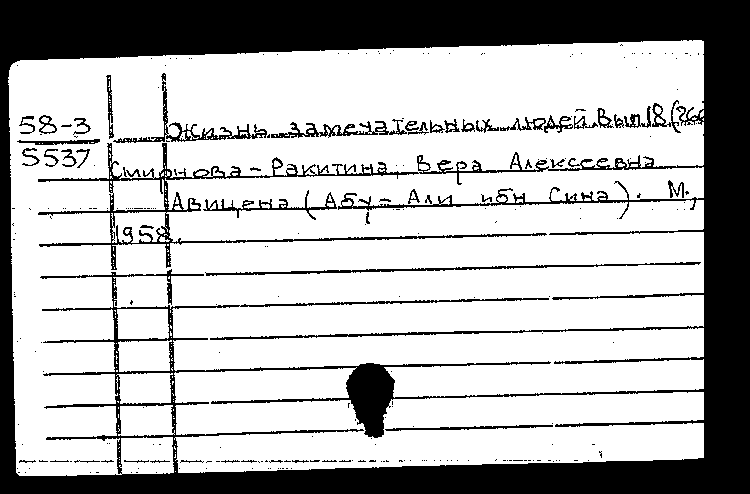 58-3
5537
Жизнь замечательных людей. Вып. 18 (26
Смирнова-Ракитина, Вера Алексеевна
Авицена (Абу-Али ибн Сина). М.,
1958.